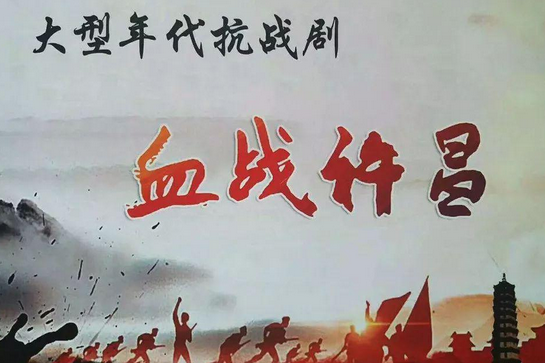 大型年代抗战剧
血战许昌